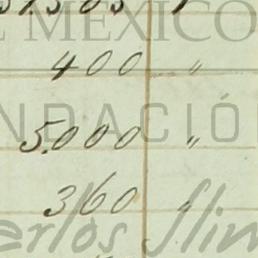 DE MÉXICO
400 "
FUNDACIÓN
5.000 "
360 "
Carlos Slim